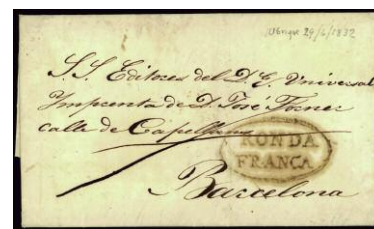 Ubrique 29/6/1832
S. S. Editores del D. G. Universal
Imprenta de D. José Torner
calle de Capellans
RONDA
FRANCA
Barcelona